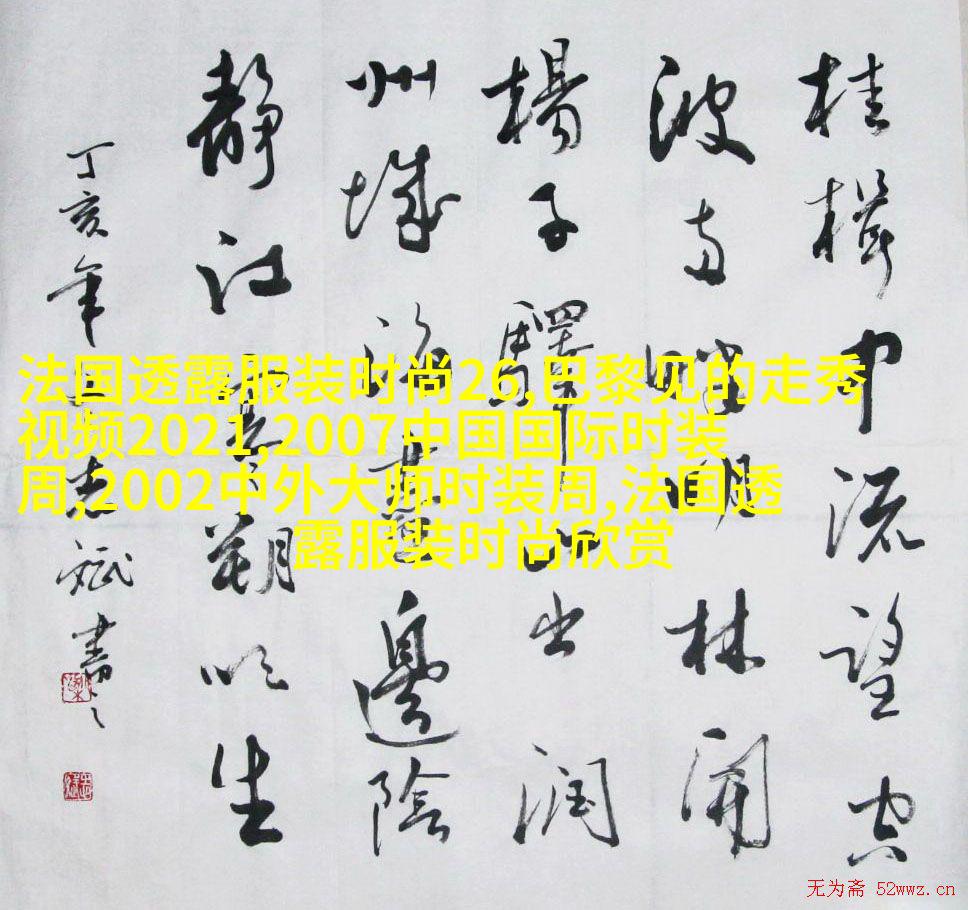 桂楫中流望空
波两畔明林開
楊子驛山出润
州城海盡邊陰
静江寒朔吹生
丁亥年志斌書
法国透露服装时尚26,巴黎见的走秀
视频2021,2007中国国际时装
周,2002中外大师时装周,法国透
露服装时尚欣赏
无为斋 52wwz.cn